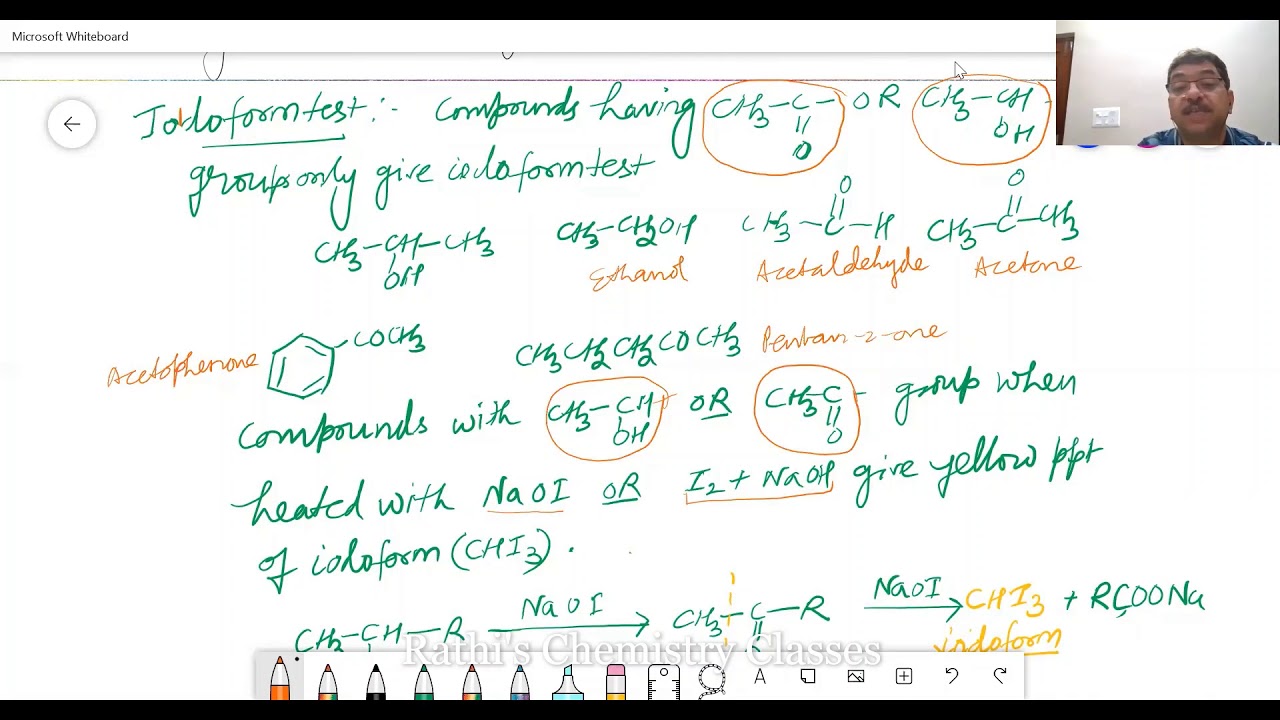 Microsoft Whiteboard
Iodoform test :- Compounds having CH3-C- OR CH3-CH-
O OH
groups only give iodoform test
CH3-CH-CH3 CH3-CH2OH CH3-C-H CH3-C-CH3
OH O O
Ethanol Acetaldehyde Acetone
Acetophenone COCH3 CH3CH2CH2COCH3 Pentan-2-one
compounds with CH3-CH- OR CH3C- group when
OH O
heated with NaOI OR I2 + NaOH give yellow ppt
of iodoform (CHI3).
CH3-CH-R NaOI CH3-C-R NaOI CHI3 + RCOONa
iodoform
Rathi's Chemistry Classes
A